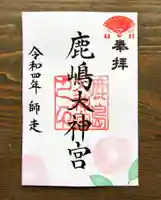 奉拝
鹿嶋大神宮
令和四年 師走